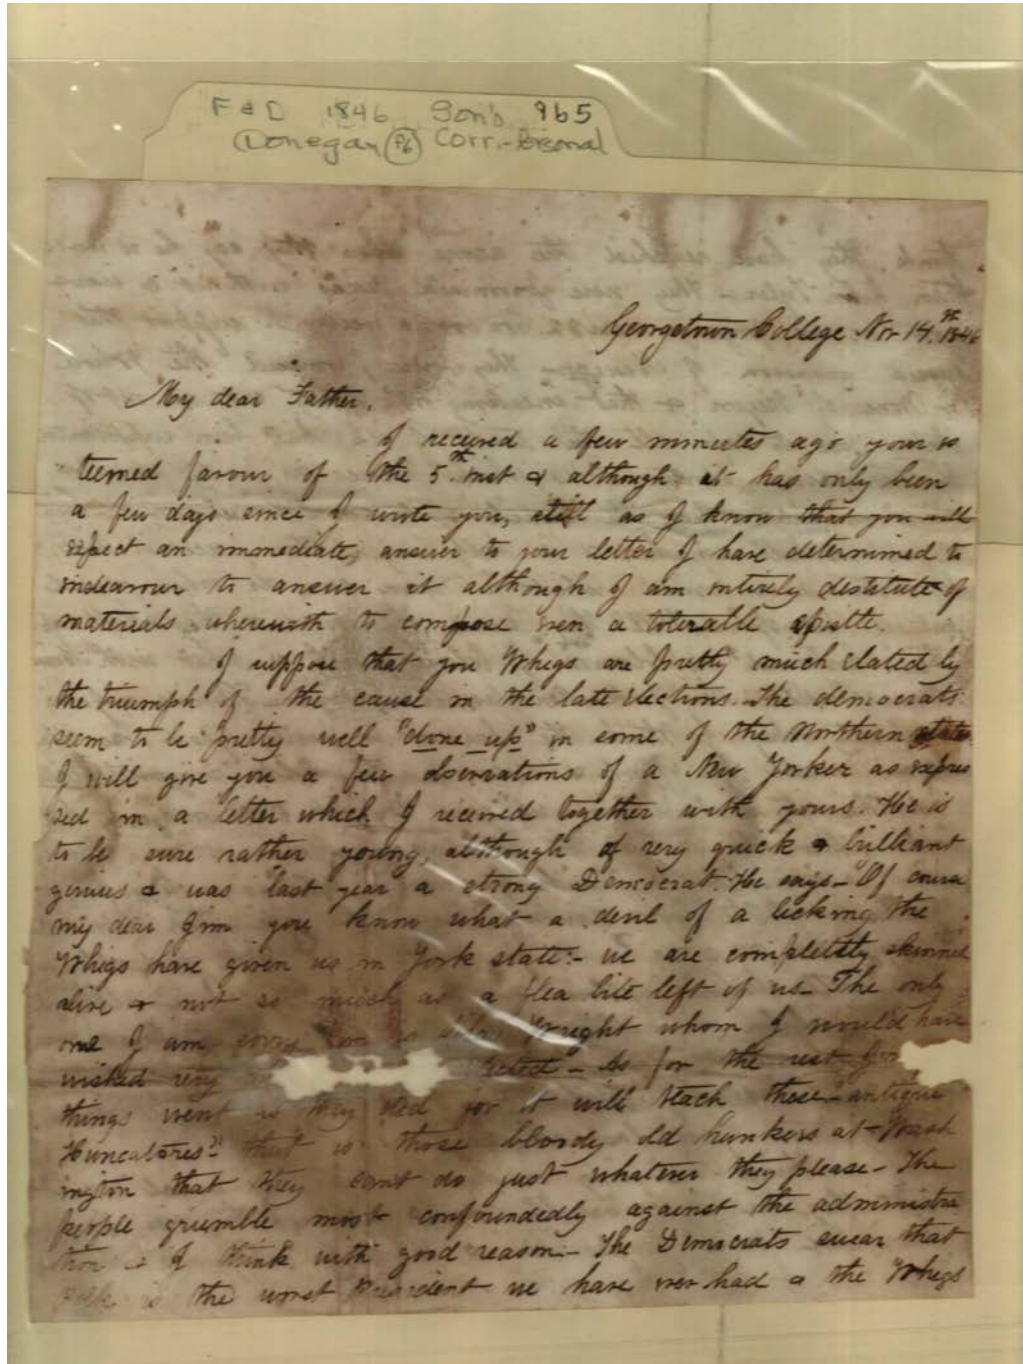 F & D 1846 Son's 965
Donegan P6 Corr.-Personal
Georgetown College Nov 14.th 1846
My dear Father,
I received a few minutes ago your es
teemed favour of the 5.th inst & although it has only been
a few days since I wrote you, still as I know that you will
expect an immediate, answer to your letter I have determined to
endeavour to answer it although I am entirely destitute of
materials wherewith to compose even a tolerable epistle.
I suppose that you Whigs are pretty much elated by
the triumph of the cause in the late elections. The democrats
seem to be pretty well "done up" in some of the Northern states
I will give you a few observations of a New Yorker as expres
sed in a letter which I received together with yours. He is
to be sure rather young, although of very quick & brilliant
genius & was last year a strong Democrat. He says - "Of course
my dear Jim you know what a devil of a licking the
Whigs have given us in York state:- we are completely skinned
alive & not so much as a flea bite left of us - The only
one I am sorry for is Silas Wright whom I would have
wished very elected - As for the rest
things went as they did for it will teach those antique
that is those bloody old hunkers at Wash
ington that they cant do just whatever they please - The
people grumble most confoundedly against the administra
tion & I think with good reason - The Democrats swear that
Polk is the worst President we have ever had & the Whigs